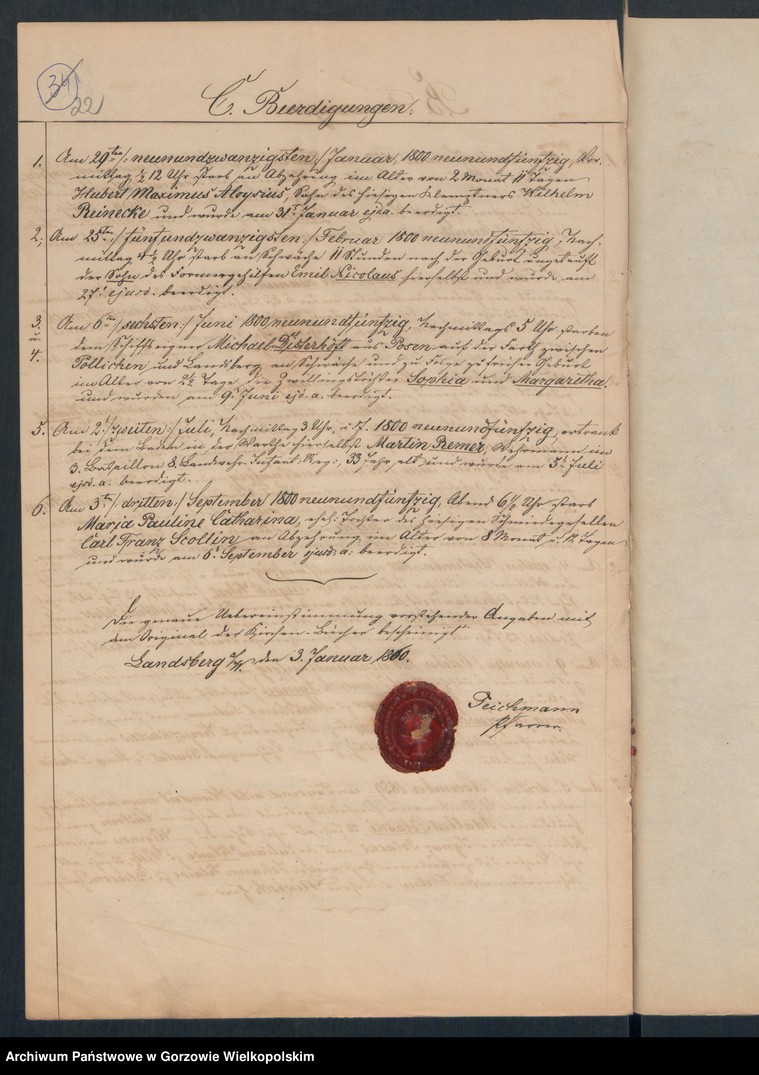 34
22
C. Beerdigungen.
1. Am 29ten /: neunundzwanzigsten :/ Januar, 1800 neunundfünfzig, Vor-
mittag ½ 12 Uhr starb an Abzehrung im Alter von 2 Monat 11 Tagen
Hubert Maximus Aloysius, Sohn des hiesigen Klemptners Wilhelm
Reinecke und wurde am 31t Januar ejs. a. beerdigt.
2., Am 25ten /: fünfundzwanzigsten :/ Februar 1800 neunundfünfzig, Nach-
mittag Uhr starb an Schwäche 11 Stunden nach der Geburt ungetauft
der Sohn des Formergehilfen Emil Nicolaus hierselbst und wurde am
27t ejusd. beerdigt.
3. Am 6ten /: sechsten :/ Juni 1800 neunundfünfzig, Nachmittags 5 Uhr starben
u. dem Schiffseigner Michael Disterhöft aus Posen auf der Fahrt zwischen
4. Pollichen und Landsberg an Schwäche und zu Folge zu früher Geburt
im Alter von 2½ Tage die Zwillingstöchter Sophia und Margaretha.
und wurden am 9t Juni ejs. a. beerdigt.
5. Am 2t /: zweiten :/ Juli, Nachmittag 3 Uhr, 1800 neunundfünfzig, ertrank
bei dem Baden in der Warthe hierselbst Martin Remer, Wehrmann im
3. Bataillon 8. Landwehr Infant: Reg:, 33 Jahr alt, und wurde am 5t Juli
ejsd. a. beerdigt.
6. Am 3ten /: dritten :/ September 1800 neunundfünfzig, Abend 6½ Uhr starb
Marja Pauline Catharina, ehel. Tochter des hiesigen Schmiedegesellen
Carl Franz Scollin an Abzehrung im Alter von 8 Monat u. 12 Tagen
und wurde am 6t September ejusd: a: beerdigt.
Die genaue Uebereinstimmung vorstehender Angaben mit
dem Original der Kirchen-Bücher bescheinigt
Landsberg a/W. den 3. Januar 1860.
Teichmann
Pfarrer.
Archiwum Państwowe w Gorzowie Wielkopolskim